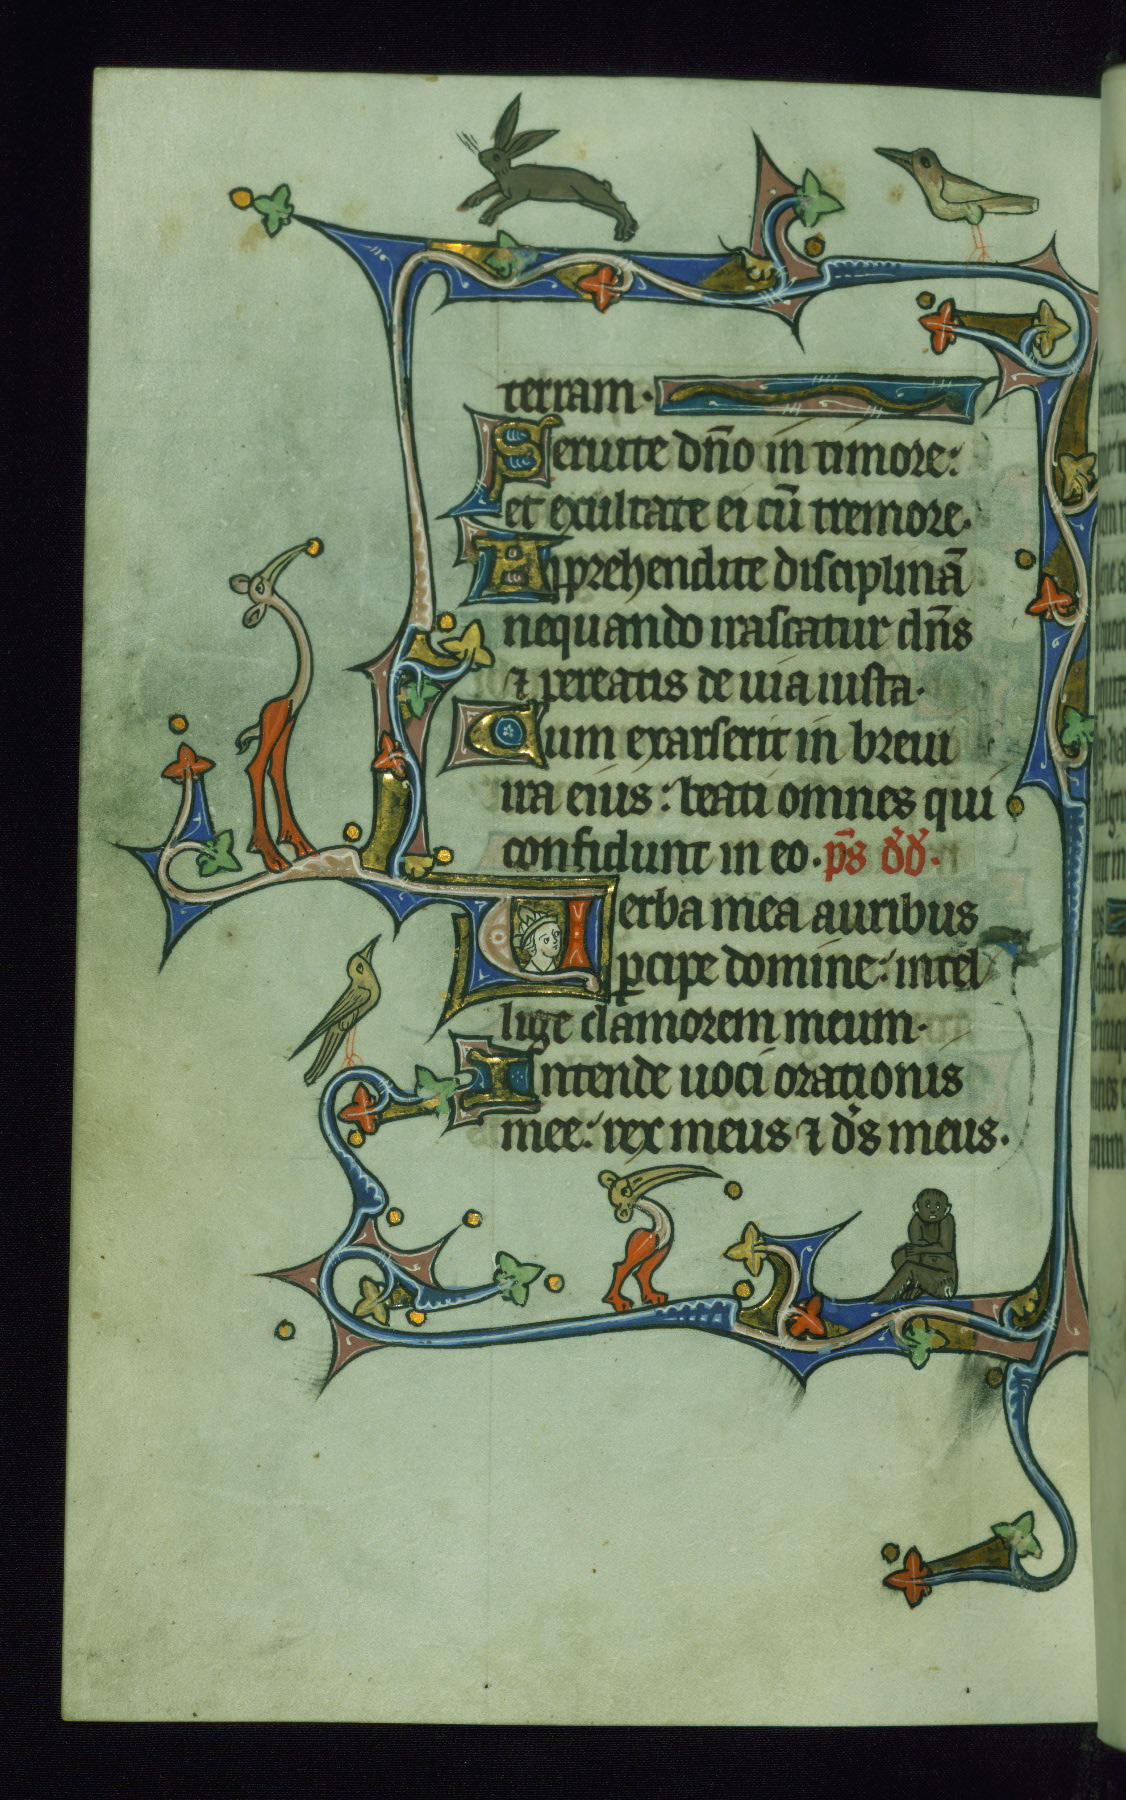 terram.
Seruite dn̄o in timore:
et exultate ei cū tremore.
Apprehendite disciplinā
nequando irascatur dn̄s
⁊ pereatis de uia iusta.
Cum exarserit in breui
ira eius: beati omnes qui
confidunt in eo. ps̄ dd̄.
Uerba mea auribus
ꝑcipe domine: intel
lige clamorem meum.
Intende uoci orationis
mee: rex meus ⁊ ds̄ meus.